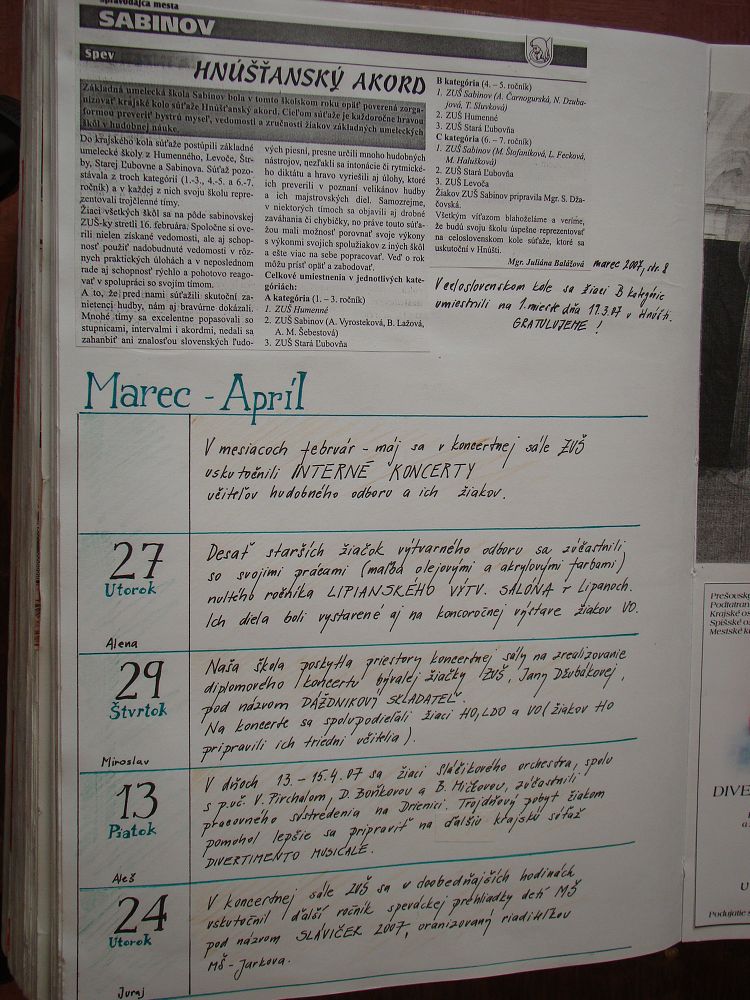 Spravodajca mesta
SABINOV
Spev
HNÚŠŤANSKÝ AKORD
Základná umelecká škola Sabinov bola v tomto školskom roku opäť poverená zorga-
nizovať krajské kolo súťaže Hnúšťanský akord. Cieľom súťaže je každoročne hravou
formou preveriť bystrú myseľ, vedomosti a zručnosti žiakov základných umeleckých
škôl v hudobnej náuke.
Do krajského kola súťaže postúpili základné
umelecké školy z Humenného, Levoče, Štr-
by, Starej Ľubovne a Sabinova. Súťaž pozo-
stávala z troch kategórií (1.-3., 4.-5. a 6.-7.
ročník) a v každej z nich svoju školu repre-
zentovali trojčlenné tímy.
Žiaci všetkých škôl sa na pôde sabinovskej
ZUŠ-ky stretli 16. februára. Spoločne si ove-
rili nielen získané vedomosti, ale aj schop-
nosť použiť nadobudnuté vedomosti v rôz-
nych praktických úlohách a v neposlednom
rade aj schopnosť rýchlo a pohotovo reago-
vať v spolupráci so svojím tímom.
A to, že pred nami súťažili skutoční za-
nietenci hudby, nám aj bravúrne dokázali.
Mnohé tímy sa excelentne popasovali so
stupnicami, intervalmi i akordmi, nedali sa
zahanbiť ani znalosťou slovenských ľudo-
vých piesní, presne určili mnoho hudobných
nástrojov, nezľakli sa intonácie či rytmické-
ho diktátu a hravo vyriešili aj úlohy, ktoré
ich preverili v poznaní velikánov hudby
a ich majstrovských diel. Samozrejme,
v niektorých tímoch sa objavili aj drobné
zaváhania či chybičky, no práve touto súťa-
žou mali možnosť porovnať svoje výkony
s výkonmi svojich spolužiakov z iných škôl
a ešte viac na sebe popracovať. Veď o rok
môžu prísť opäť a zabodovať.
Celkové umiestnenia v jednotlivých kate-
góriách:
A kategória (1. – 3. ročník)
1. ZUŠ Humenné
2. ZUŠ Sabinov (A. Vyrosteková, B. Lažová,
A. M. Šebestová)
3. ZUŠ Stará Ľubovňa
B kategória (4. – 5. ročník)
1. ZUŠ Sabinov (A. Čarnogurská, N. Dzuba-
jová, T. Sluvková)
2. ZUŠ Humenné
3. ZUŠ Stará Ľubovňa
C kategória (6. – 7. ročník)
1. ZUŠ Sabinov (M. Štofaniková, L. Fecková,
M. Halušková)
2. ZUŠ Stará Ľubovňa
3. ZUŠ Levoča
Žiakov ZUŠ Sabinov pripravila Mgr. S. Dža-
čovská.
Všetkým víťazom blahoželáme a veríme,
že budú svoju školu úspešne reprezentovať
na celoslovenskom kole súťaže, ktoré sa
uskutoční v Hnúšti.
Mgr. Juliána Balážová
marec 2007, str. 8
V celoslovenskom kole sa žiaci B kategórie
umiestnili na 1. mieste dňa 17.3.07 v Hnúšti.
GRATULUJEME !
Marec - Apríl
V mesiacoch február - máj sa v koncertnej sále ZUŠ
uskutočnili INTERNÉ KONCERTY
učiteľov hudobného odboru a ich žiakov.
27
Utorok
Alena
Desať starších žiačok výtvarného odboru sa zúčastnili
so svojimi prácami (maľba olejovými a akrylovými farbami)
nultého ročníka LIPIANSKÉHO VÝTV. SALÓNA v Lipanoch.
Ich diela boli vystavené aj na koncoročnej výstave žiakov VO.
29
Štvrtok
Miroslav
Naša škola poskytla priestory koncertnej sály na zrealizovanie
diplomového koncertu bývalej žiačky ZUŠ, Jany Džubákovej,
pod názvom DÁŽDNIKOVÝ SKLADATEĽ.
Na koncerte sa spolupodieľali žiaci HO, LDO a VO (žiakov HO
pripravili ich triedni učitelia).
13
Piatok
Aleš
V dňoch 13. - 15.4.07 sa žiaci sláčikového orchestra, spolu
s p.uč. V. Pirchalom, D. Boňkovou a B. Mičkovou, zúčastnili
pracovného sústredenia na Drienici. Trojdňový pobyt žiakom
pomohol lepšie sa pripraviť na ďalšiu krajskú súťaž
DIVERTIMENTO MUSICALE.
24
Utorok
Juraj
V koncertnej sále ZUŠ sa v doobedňajších hodinách
uskutočnil ďalší ročník speváckej prehliadky detí MŠ
pod názvom SLÁVIČEK 2007, oranizovaný riaditeľkou
MŠ - Jarkova.
Prešovsk
Podtatran
Krajské os
Spišské os
Mestské k
DIVE
U
Podujatie s